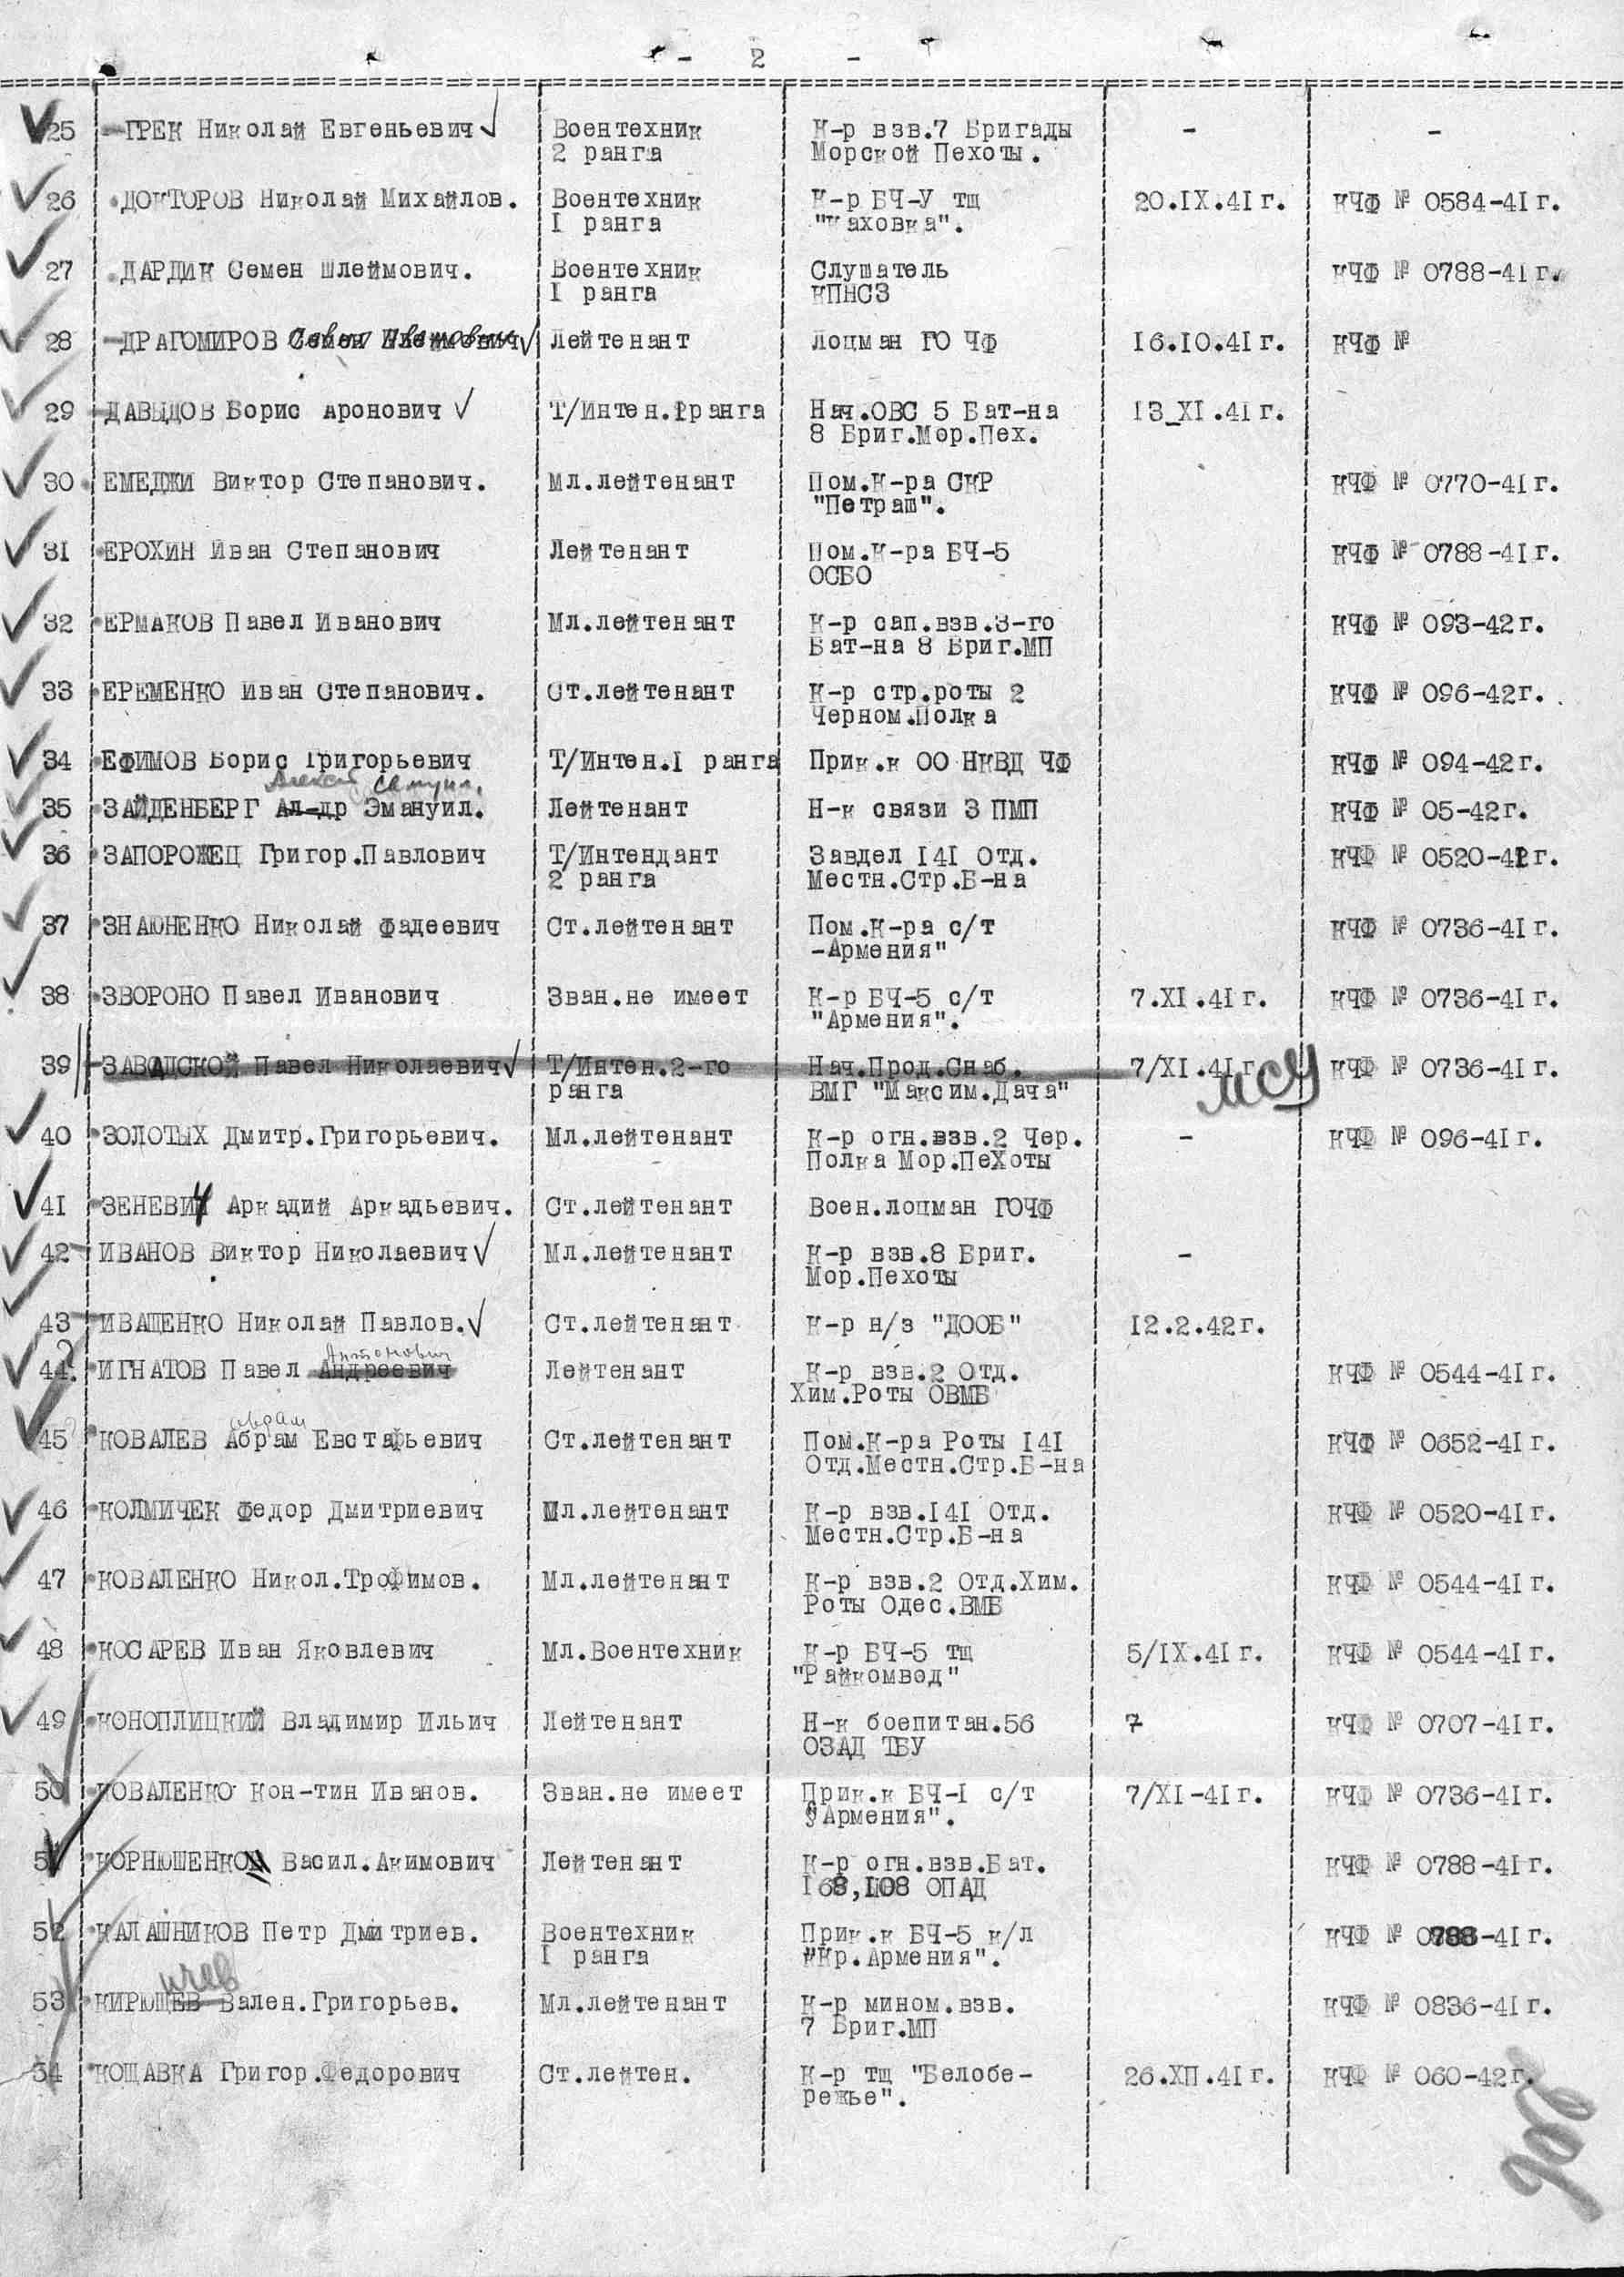 - 2 -
25 ГРЕК Николай Евгеньевич Воентехник К-р взв.7 Бригады - -
2 ранга Морской Пехоты.
26 ДОКТОРОВ Николай Михайлов. Воентехник К-р БЧ-У тщ 20.IX.41г. КЧФ № 0584-41г.
I ранга "Каховка".
27 ДАРДИК Семен Шлеймович. Воентехник Слушатель КЧФ № 0788-41г.
I ранга КПНСЗ
28 ДРАГОМИРОВ Лейтенант Лоцман ГО ЧФ 16.10.41г. КЧФ №
29 ДАВЫДОВ Борис Аронович Т/Интен. ранга Нач.ОВС 5 Бат-на 13_XI.41г.
8 Бриг.Мор.Пех.
30 ЕМЕДЖИ Виктор Степанович. Мл.лейтенант Пом.К-ра СКР КЧФ № 0770-41г.
"Петраш".
31 ЕРОХИН Иван Степанович Лейтенант Пом.К-ра БЧ-5 КЧФ № 0788-41г.
ОСБО
32 ЕРМАКОВ Павел Иванович Мл.лейтенант К-р сап.взв.3-го КЧФ № 093-42г.
Бат-на 8 Бриг.МП
33 ЕРЕМЕНКО Иван Степанович. Ст.лейтенант К-р стр.роты 2 КЧФ № 096-42г.
Черном.Полка
34 ЕФИМОВ Борис Григорьевич Т/Интен.I ранга Прик.к ОО НКВД ЧФ КЧФ № 094-42г.
Самуил.
35 ЗАЙДЕНБЕРГ Ал-др Эмануил. Лейтенант Н-к связи 3 ПМП КЧФ № 05-42г.
36 ЗАПОРОЖЕЦ Григор.Павлович Т/Интендант Завдел 141 Отд. КЧФ № 0520-41г.
2 ранга Местн.Стр.Б-на
37 ЗНАЮНЕНКО Николай Фадеевич Ст.лейтенант Пом.К-ра с/т КЧФ № 0736-41г.
-Армения"
38 ЗВОРОНО Павел Иванович Зван.не имеет К-р БЧ-5 с/т 7.XI.41г. КЧФ № 0736-41г.
"Армения".
39 ЗАВАДСКОЙ Павел Николаевич Т/Интен.2-го Нач.Прод.Снаб. 7/XI.41г КЧФ № 0736-41г.
ранга ВМГ "Максим.Дача" мсу
40 ЗОЛОТЫХ Дмитр.Григорьевич. Мл.лейтенант К-р огн.взв.2 Чер. - КЧФ № 096-41г.
Полка Мор.ПеХоты
41 ЗЕНЕВИЧ Аркадий Аркадьевич. Ст.лейтенант Воен.лоцман ГОЧФ
42 ИВАНОВ Виктор Николаевич Мл.лейтенант К-р взв.8 Бриг. -
Мор.Пехоты
43 ИВАЩЕНКО Николай Павлов. Ст.лейтенант К-р н/з "ДООБ" 12.2.42г.
Антонович
44 ? ИГНАТОВ Павел Андреевич Лейтенант К-р взв.2 Отд. КЧФ № 0544-41г.
Хим.Роты ОВМБ
45 КОВАЛЕВ Абрам Евстафьевич Ст.лейтенант Пом.К-ра Роты 141 КЧФ № 0652-41г.
Отд.Местн.Стр.Б-на
46 КОЛМИЧЕК Федор Дмитриевич Мл.лейтенант К-р взв.141 Отд. КЧФ № 0520-41г.
Местн.Стр.Б-на
47 КОВАЛЕНКО Никол.Трофимов. Мл.лейтенант К-р взв.2 Отд.Хим. КЧФ № 0544-41г.
Роты Одес.ВМБ
48 КОСАРЕВ Иван Яковлевич Мл.Воентехник К-р БЧ-5 тщ 5/IX.41г. КЧФ № 0544-41г.
"Райкомвод"
49 КОНОПЛИЦКИЙ Владимир Ильич Лейтенант Н-к боепитан.56 7 КЧФ № 0707-41г.
ОЗАД ТБУ
50 КОВАЛЕНКО Кон-тин Иванов. Зван.не имеет Прик.к БЧ-I с/т 7/XI-41г. КЧФ № 0736-41г.
"Армения".
51 КОРНЮШЕНКО Васил.Акимович Лейтенант К-р огн.взв.Бат. КЧФ № 0788-41г.
168,108 ОПАД
52 КАЛАШНИКОВ Петр Дмитриев. Воентехник Прик.к БЧ-5 к/л КЧФ № 0788-41г.
I ранга "Кр.Армения".
ичев
53 КИРЮЩЕВ Вален.Григорьев. Мл.лейтенант К-р мином.взв. КЧФ № 0836-41г.
7 Бриг.МП
54 КОЩАВКА Григор.Федорович Ст.лейтен. К-р тщ "Белобе- 26.XII.41г. КЧФ № 060-42г.
режье".